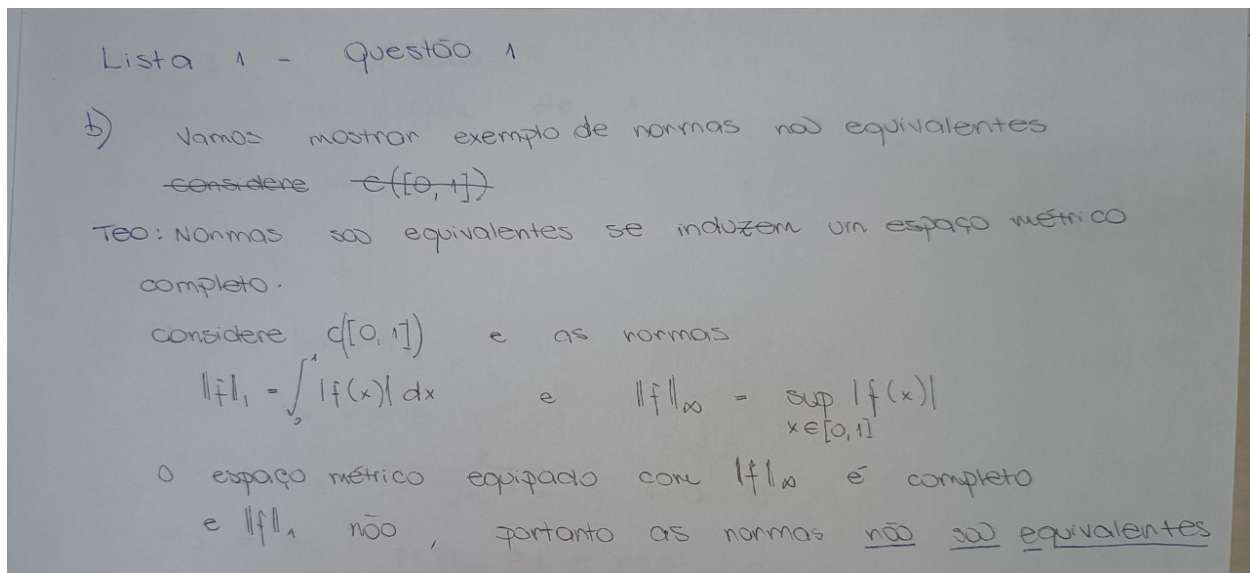 Lista 1 - Questão 1
b) Vamos mostrar exemplo de normas não equivalentes
considere C([0,1])
TEO: Normas são equivalentes se induzem um espaço métrico
completo.
considere C([0,1]) e as normas
‖f‖₁ = ∫₀¹ |f(x)| dx e ‖f‖∞ = sup |f(x)|
x∈[0,1]
O espaço métrico equipado com ‖f‖∞ é completo
e ‖f‖₁ não, portanto as normas não são equivalentes